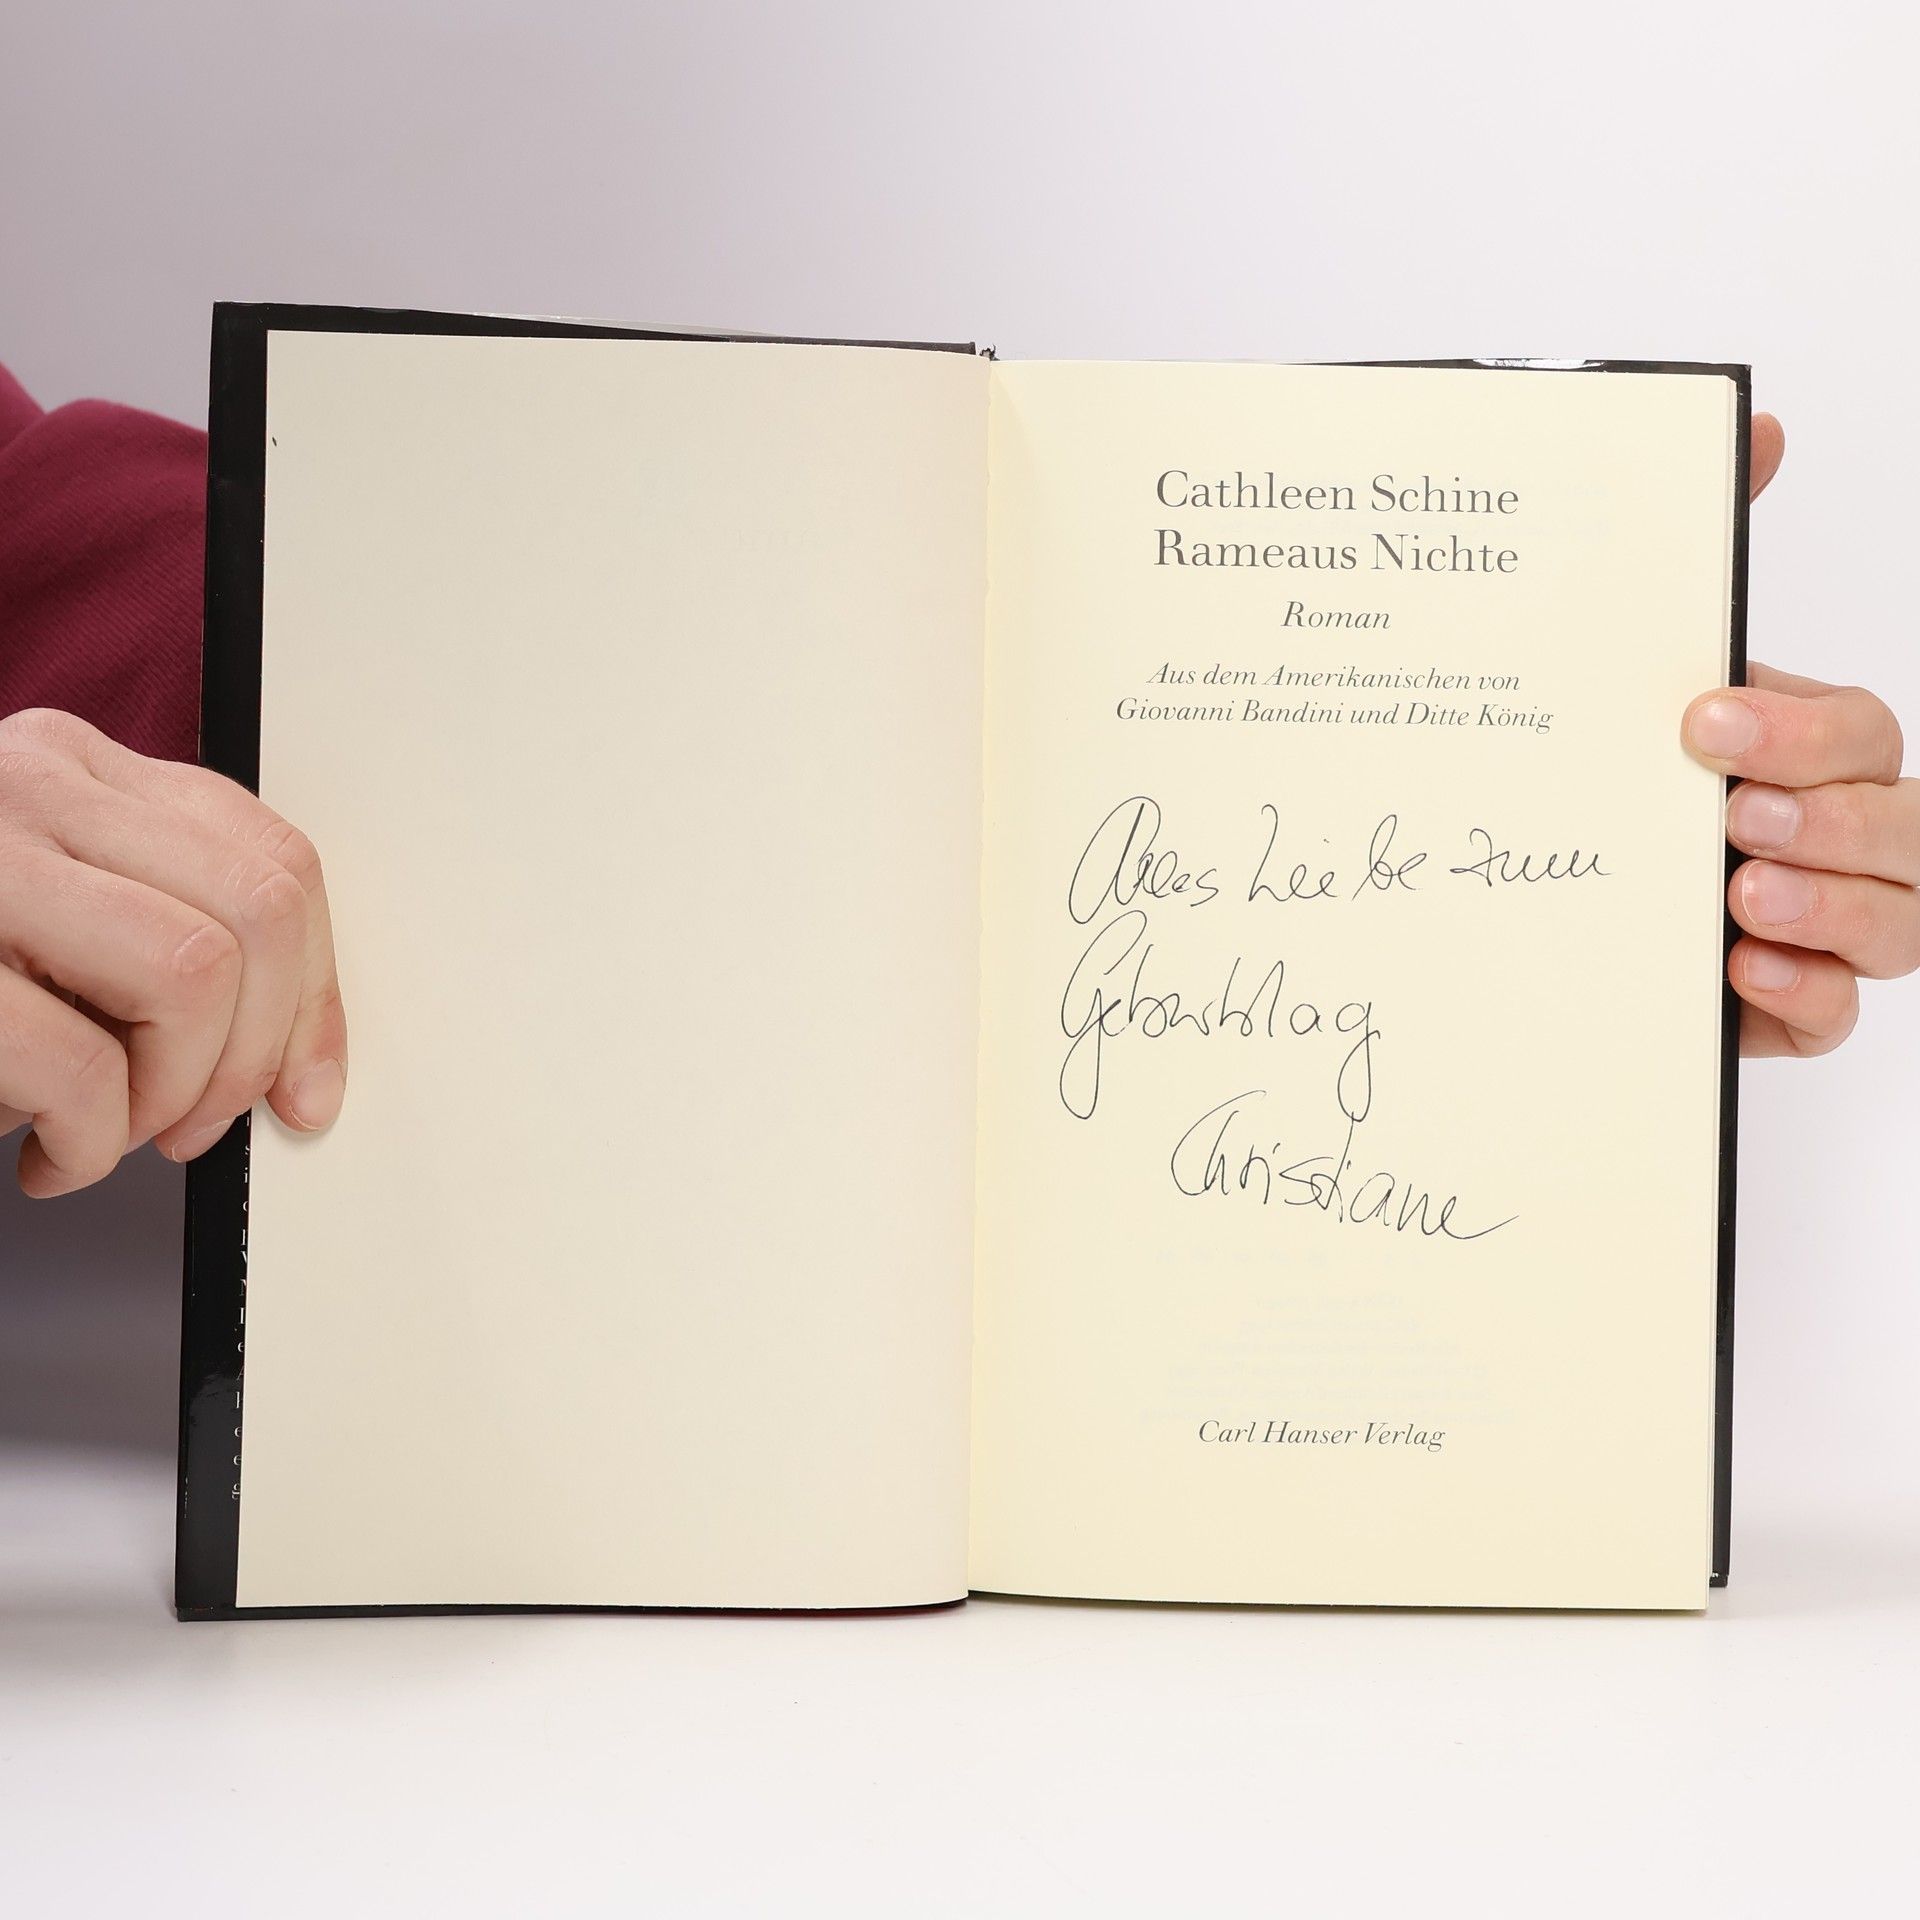 Cathleen Schine
Rameaus Nichte
Roman
Aus dem Amerikanischen von
Giovanni Bandini und Ditte König
Alles Liebe zum
Geburtstag
Christiane
Carl Hanser Verlag